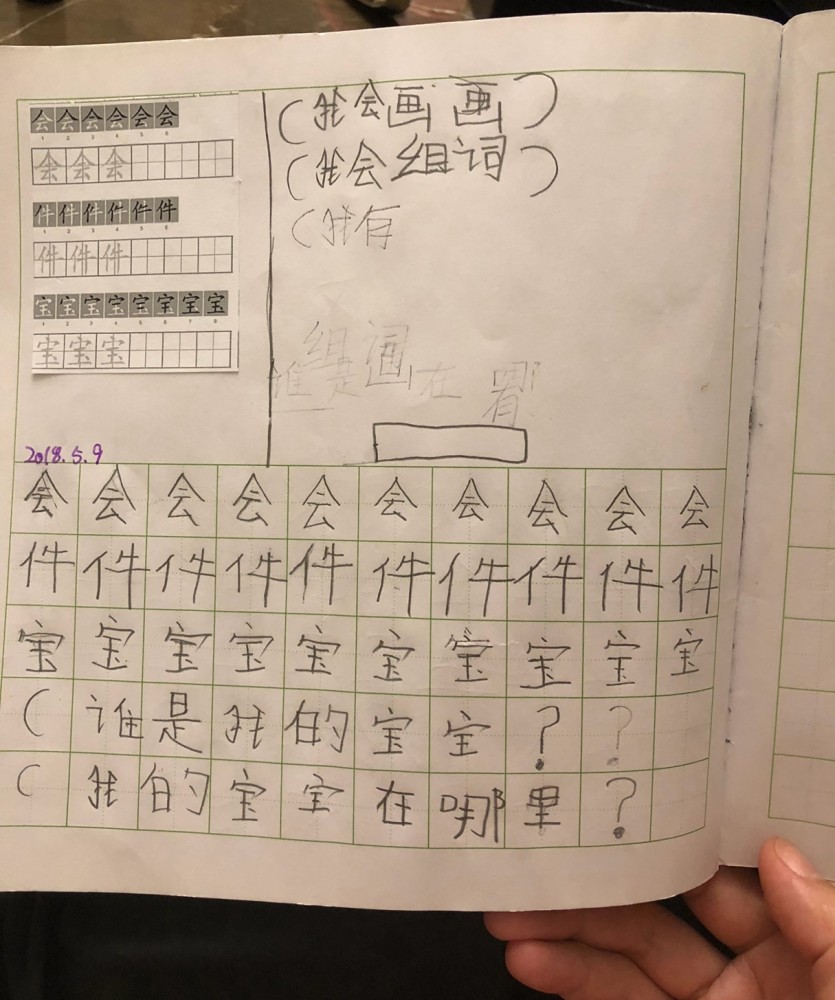 会会会会会会
1 2 3 4 5 6
会会会
件件件件件件
1 2 3 4 5 6
件件件
宝宝宝宝宝宝宝宝
1 2 3 4 5 6 7 8
宝宝宝
(我会画画)
(我会组词)
(我有
组词画
谁是 在 哪
看
2018.5.9
会会会会会会会会会会
件件件件件件件件件件
宝宝宝宝宝宝宝宝宝宝
(谁是我的宝宝??
(我的宝宝在哪里?